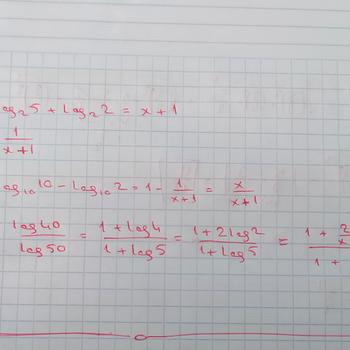 og₂5 + log₂2 = x + 1
1/(x+1)
og₁₀10 - log₁₀2 = 1 - 1/(x+1) = x/(x+1)
log40/log50 = (1 + log4)/(1 + log5) = (1 + 2log2)/(1 + log5) = (1 + 2/x)/(1 +